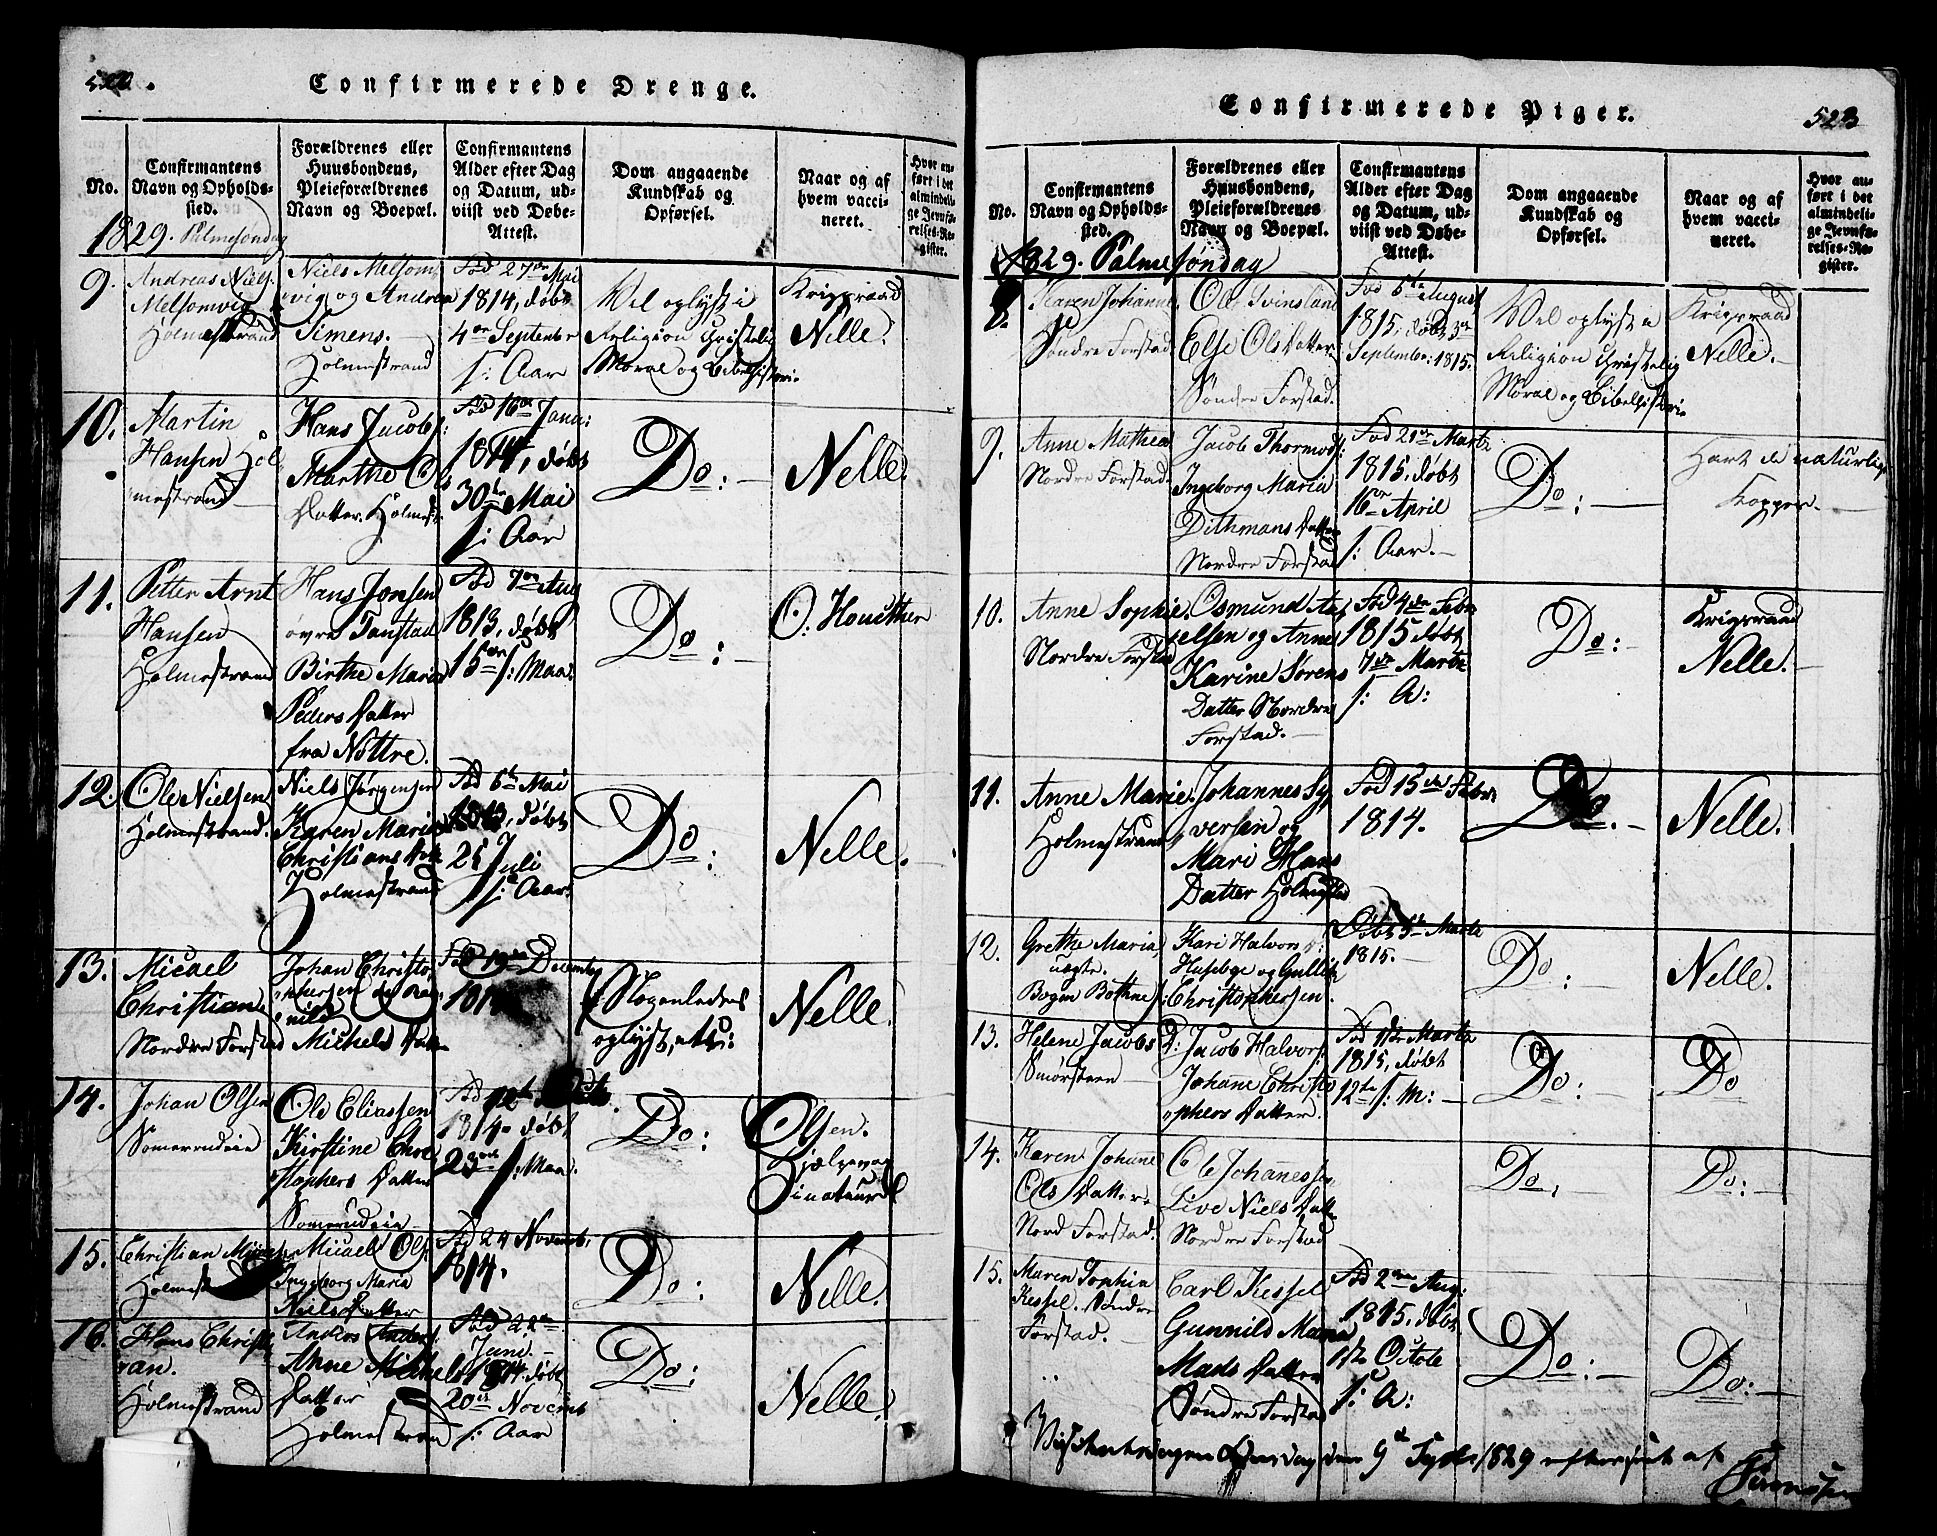 Confirmerede Drenge.
No.
Confirmantens
Navn og Opholds-
sted.
Forældrenes eller
Huusbondens,
Pleieforældrenes
Navn og Boepæl.
Confirmantens
Alder efter Dag
og Datum, ud-
viist ved Døbe-
Attest.
Dom angaaende
Kundskab og
Opførsel.
Naar og af
hvem vacci-
neret.
Hvor an-
ført i det
almindeli-
ge Jevnfø-
relses-Re-
gister.
1829. Palmesöndag
9.
Andreas Niels.
Melsomvig
Holmestrand
Niels Melsom-
vig og Andrea
Simens.
Holmestrand
Fød 27de Mai
1814, døbt
4de September
s: Aar
Vel oplyst i
Religion Christelig
Moral og Bibelhistori-
Krigsraad
Nelle.
10.
Martin
Hansen Hol
mestrand
Hans Jacobs:
Marthe Ols
Datter. Holmest
Fød 16de Janu:
1814, døbt
30te Mai
s: Aar
Do:
Nelle.
11.
Petter Arnt
Hansen
Holmestrand
Hans Jonsen
øvre Tanstad
Birthe Maria
Peders Datter
fra Nöttre.
Fød 7de Aug
1813, døbt
15de s: Maa:
Do:
O. Houether
12.
Ole Nielsen
Holmestrand.
Niels Jørgensen
Karen Maria
Christians Datt
Holmestrand
Fød 6te Mai
1813, døbt
25 Juli
s: Aar.
Do:
Nelle.
13.
Micael
Christian
Nordre Forstad
Johan Christo
phersen og Rag-
nild
Michels Datter
Fød 19de Decemb
181
Nogenledes
oplyst, etc:
Nelle.
14.
Johan Olsen
Somerudeie
Ole Eliassen
Kirstine Chri
stophers Datter
Somerudeie
Fød 12te
1814 døbt
23de s: Maa.
Do:
Olsen.
Hjelpevac
sinateur
15.
Christian
Holmest
Micael Ols.
Ingeborg Maria
Niels Datter
Fød 24 Novemb.
1814.
Do:
Nelle.
16.
Hans Christi
ian.
Holmestrand
Anders Anders.
Anne Michels
Datter
Holmestrand
Fød 22de
Juni
1814. døbt
20de Novemb
s: Aar
Do:
Nelle.
Confirmerede Piger.
523
No.
Confirmantens
Navn og Opholds-
sted.
Forældrenes eller
Huusbondens,
Pleieforældrenes
Navn og Boepæl.
Confirmantens
Alder efter Dag
og Datum, ud-
viist ved Døbe-
Attest.
Dom angaaende
Kundskab og
Opførsel.
Naar og af
hvem vacci-
neret.
Hvor an-
ført i det
almindeli-
ge Jevnfø-
relses-Re-
gister.
1829. Palmesøndag
8.
Karen Johanne.
Søndre Forstad
Ole Svinsland
Else Olsdatter
Søndre Forstad.
Fød 5te August
1815, døbt 3de
September: 1815.
Vel oplyst i
Religion Christelig
Moral og Bibelhistori-
Krigsraad
Nelle.
9.
Anne Mathea
Nordre Forstad.
Jacob Thormods:
Ingeborg Maria
Dithmans Datter
Nordre Forstad
Fød 21de Marts
1815, døbt
16de April
s: Aar.
Do:
Havt de naturlige
Kopper.
10.
Anne Sophie.
Nordre Forstad
Osmund Ax
elsen og Anne
Karine Sørens
Datter Nordre
Forstad.
Fød 4de Febr
1815 døbt
7de Marts
s: A:
Do:
Krigsraad
Nelle.
11.
Anne Marie.
Holmestrand
Johannes Sy
versen og
Mari Hans
Datter Holmestrd
Fød 15de Febr.
1814.
Do.
Nelle.
12.
Grethe Maria,
uægte.
Bogen Bothne
Kari Halvors
Huseby og Gullik
Christophersen.
Døbt 5te Marts
1815.
Do:
Nelle.
13.
Helene Jacobs D:
Smørsteen
Jacob Halvors:
Johanne Christo
phers Datter.
Fød 1ste Marts
1815, døbt
12te s: M:
Do:
Do
14.
Karen Johanne
Ols Datter
Nord Forstad.
Ole Johannessen
Live Niels Datter
Nordre Forstad
Do.
Do:
15.
Maren Sophia
Kessel. Søndre
Forstad.
Carl Kessel
Gunnild Maria
Mads Datter
Søndre Forstad
Fød 2den Aug:
1815. døbt
1ste Octobe
s: A:
Do:
Do:
9de 1829 efterseet af